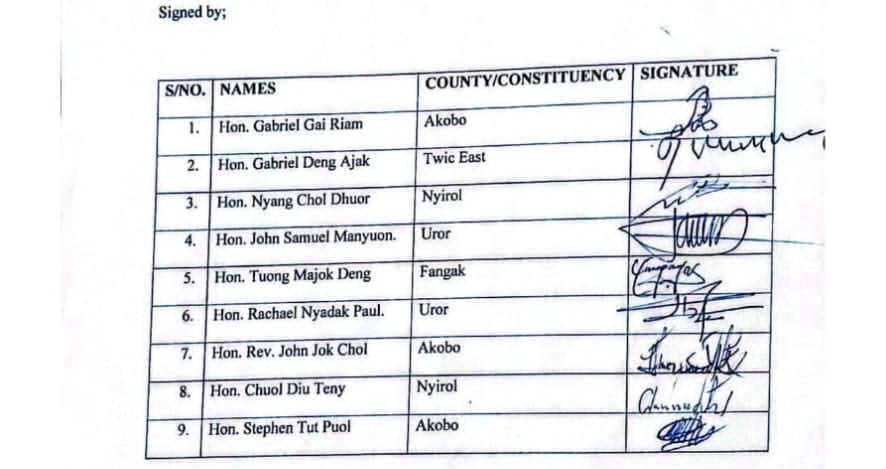 Signed by;
S/NO. NAMES COUNTY/CONSTITUENCY SIGNATURE
1. Hon. Gabriel Gai Riam Akobo
2. Hon. Gabriel Deng Ajak Twic East
3. Hon. Nyang Chol Dhuor Nyirol
4. Hon. John Samuel Manyuon. Uror
5. Hon. Tuong Majok Deng Fangak
6. Hon. Rachael Nyadak Paul. Uror
7. Hon. Rev. John Jok Chol Akobo
8. Hon. Chuol Diu Teny Nyirol
9. Hon. Stephen Tut Puol Akobo